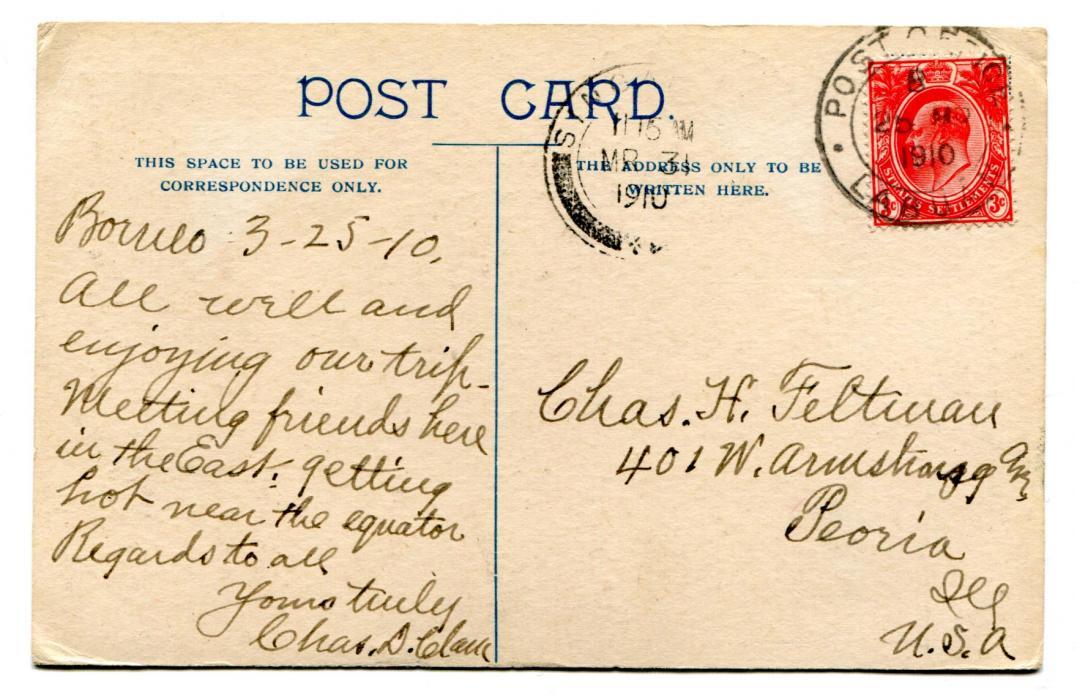 POST CARD.
THIS SPACE TO BE USED FOR
CORRESPONDENCE ONLY.
THE ADDRESS ONLY TO BE
WRITTEN HERE.
11 15 AM
MR 31
1910
POST OFFICE
25 MR
1910
STRAITS SETTLEMENTS
3c 3c
Borneo 3-25-10.
All well and
enjoying our trip-
Meeting friends here
in the East. getting
hot near the equator
Regards to all
Yours truly
Chas. D. Clark
Chas. H. Feltman
401 W. Armstrong Av.
Peoria
Ill
U.S.A